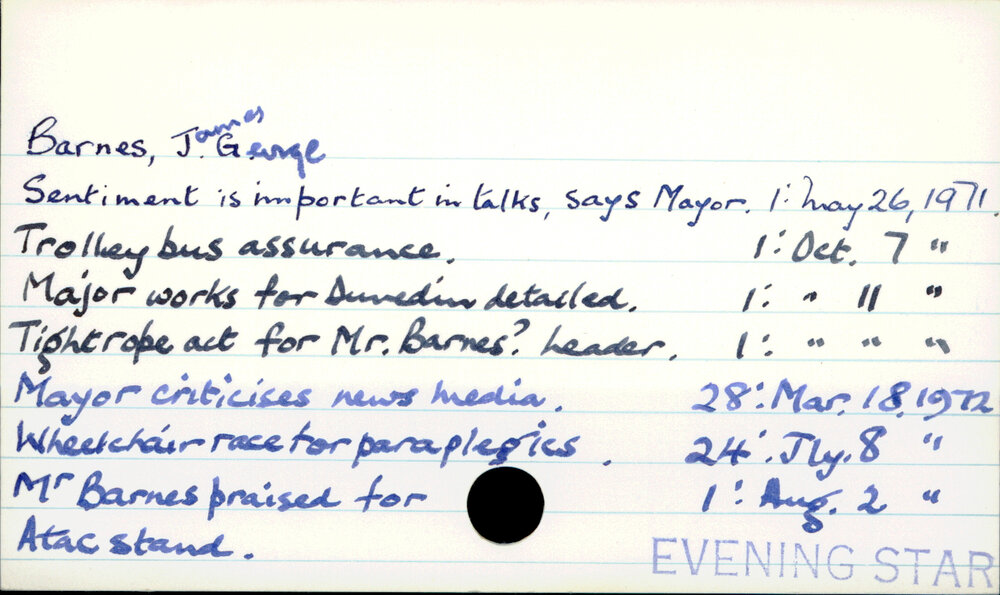 Barnes, James George
Sentiment is important in talks, says Mayor. 1: May 26, 1971.
Trolley bus assurance. 1: Oct. 7 "
Major works for Dunedin detailed. 1: " 11 "
Tightrope act for Mr. Barnes? Leader. 1: " " "
Mayor criticises news media. 28: Mar. 18, 1972
Wheelchair race for paraplegics. 24: Jly. 8 "
Mr Barnes praised for 1: Aug. 2 "
Atac stand.
EVENING STAR